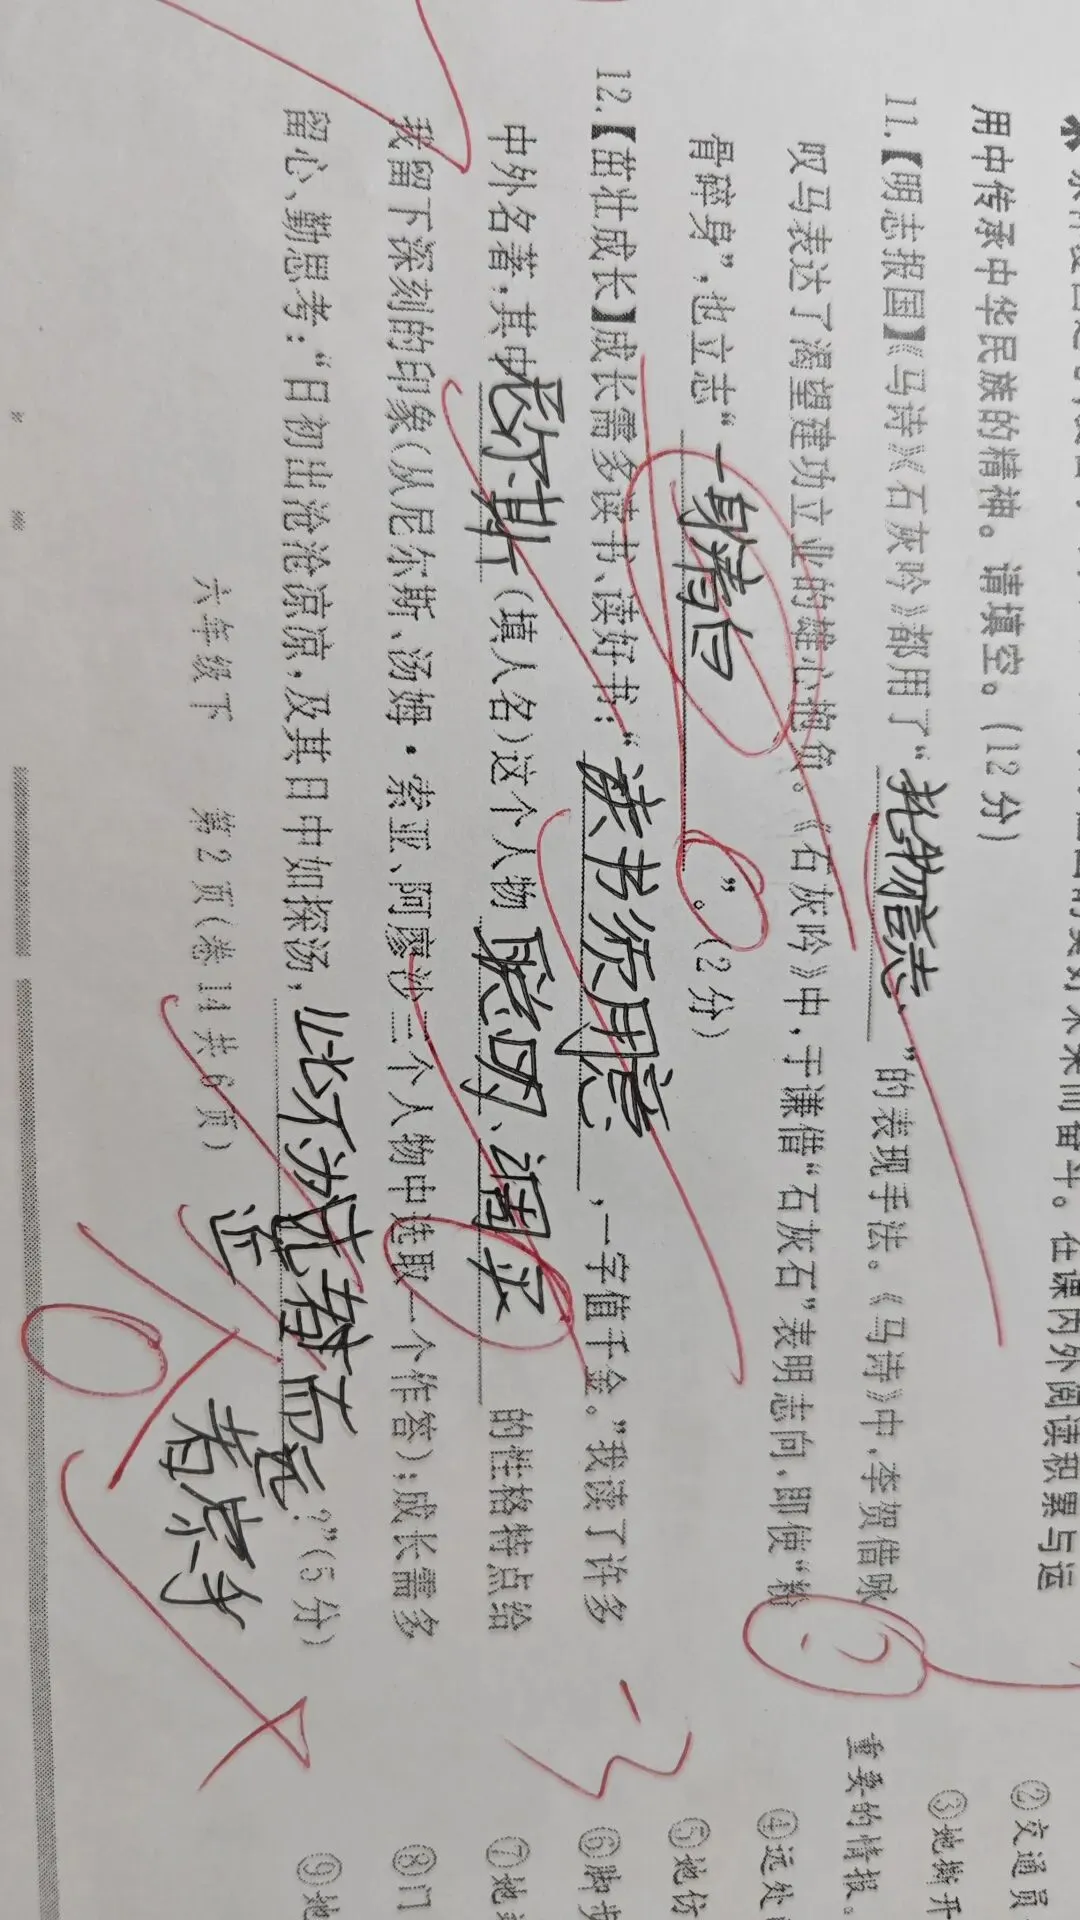 用中传承中华民族的精神。请填空。(12分)
11.【明志报国】《马诗》《石灰吟》都用了“托物言志”的表现手法。《马诗》中,李贺借咏
叹马表达了渴望建功立业的雄心抱负。《石灰吟》中,于谦借“石灰石”表明志向,即使“粉
骨碎身”,也立志“一身清白”。(2分)
12.【茁壮成长】成长需多读书、读好书:“读书须用意,一字值千金。”我读了许多
中外名著,其中尼尔斯(填人名)这个人物聪明、调皮的性格特点给
我留下深刻的印象(从尼尔斯、汤姆·索亚、阿廖沙三个人物中选取一个作答);成长需多
留心、勤思考:“日初出沧沧凉凉,及其日中如探汤,此不为近者热而远
者凉乎?”(5分)
六年级下 第2页(卷14共6页)
②交通员
③她撕开
重要的情报。
④远处
⑤她份
⑥脚步
⑦她
⑧门
⑨她